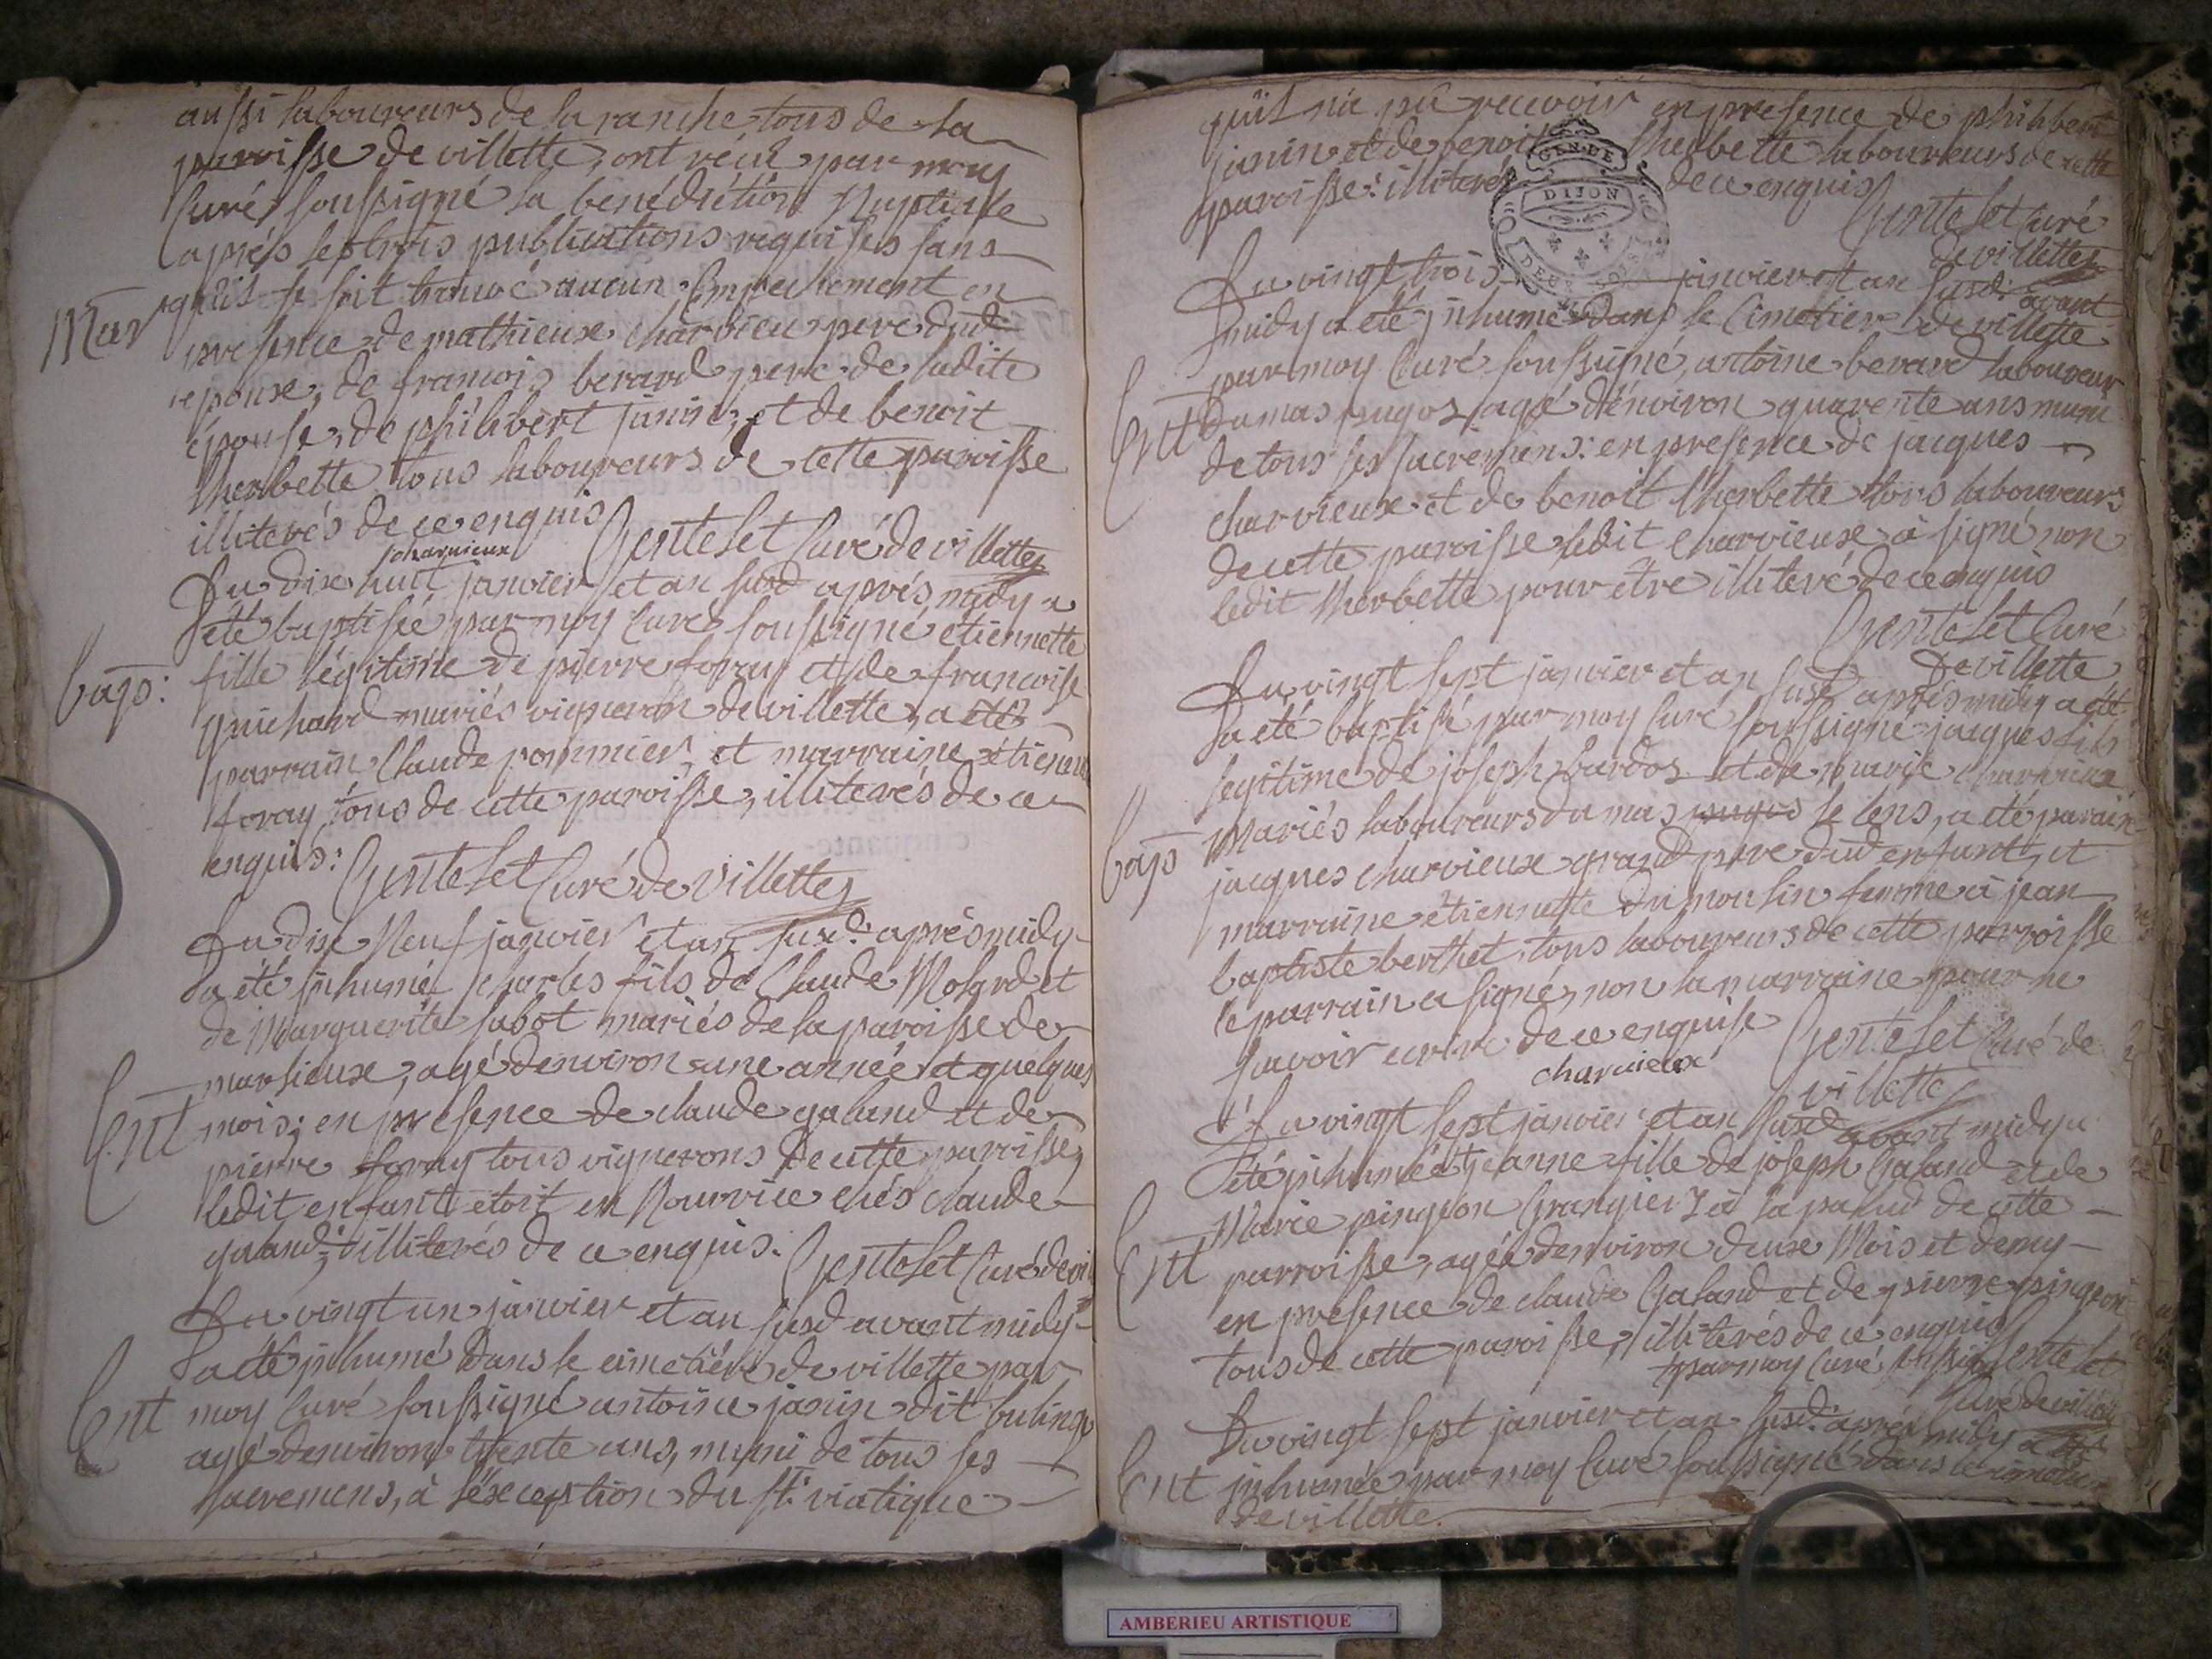 aussi laboureurs de la ranche tous de la
paroisse de villette, ont reçu par moy
Curé soussigné la bénédiction Nuptiale
après les trois publications requises sans
Mar
qu'il se soit trouvé aucun Empechement en
presence de mathieux charvieu pere dud
epoux, de francois berard pere de ladite
épouse, de philibert janin, et de benoit
therbette tous laboureurs de cette paroisse
illiterés de ce enquis
charvieux
Gentelet Curé de villette
Du dix huit janvier et an susd après midy a
été baptisée par moy Curé soussigné etiennette
bap:
fille légitime de pierre foray et de francoise
guichard mariés vigneron de villette, a été
parrain Claude pommier, et marraine etienne
foray tous de cette paroisse, illiterés de ce
enquis: Gentelet Curé de villette
Du dix Neuf janvier et an susd: après midy
a été inhumé charles fils de Claude Molard et
de Marguerite sabot mariés de la paroisse de
marlieux, agé denviron une année et quelques
Ent
mois; en presence de claude galand et de
pierre foray tous vignerons de cette paroisse,
ledit enfant étoit en Nourrice chés claude
galand; illiterés de ce enquis. Gentelet Curé de vi
Du vingt un janvier et an susd avant midy
a été inhumé dans le cimetière de villette par
Ent
moy Curé soussigné antoine janin dit
agé denviron trente ans, muni de tous ses
sacremens, à l'exception du st. viatique
qu'il n'a pû recevoir en presence de philibert
janin et de benoit therbette laboureurs de cette
paroisse: illiterés de ce enquis
GEN DE
DIJON
Gentelet Curé
de villette
Du vingt trois janvier et an susd: avant
midy a été inhumé dans le Cimetier de villette
par moy Curé soussigné, antoine berard laboureur
Ent
du mas agé d'environ quarente ans muni
de tous ses sacremens: en presence de jacques
charvieux et de benoit therbette tous laboureurs
de cette paroisse ledit charvieux a signé non
ledit therbette pour être illiteré de ce enquis
Gentelet Curé
de villette
Du vingt sept janvier et an susd après midy a été
a été baptisé par moy Curé soussigné jacques fils
legitime de joseph et de marie charvieux
bap
Mariés laboureurs du mas le lens, a été parain
jacques charvieux grand pere dud enfant, et
marraine etiennette du moulin femme à jean
baptiste berthet, tous laboureurs de cette parroisse
le parrain a signé, non la marraine pour ne
savoir ecrire de ce enquise
charvieux
Gentelet Curé de
villette
Du vingt sept janvier et an susd avant midy a
été inhumée jeanne fille de joseph Galand et de
Marie pingeon Grangier à la palud de cette
Ent
parroisse, agée denviron deux Mois et demy
en presence de claude Galand et de pierre pingeon
tous de cette paroisse, illiterés de ce enquis
par moy Curé soussigné Gentelet
Curé de villette
Du vingt sept janvier et an susd: après midy a été
Ent
inhumée par moy Curé soussigné dans le cimetier
de villette.
AMBERIEU ARTISTIQUE